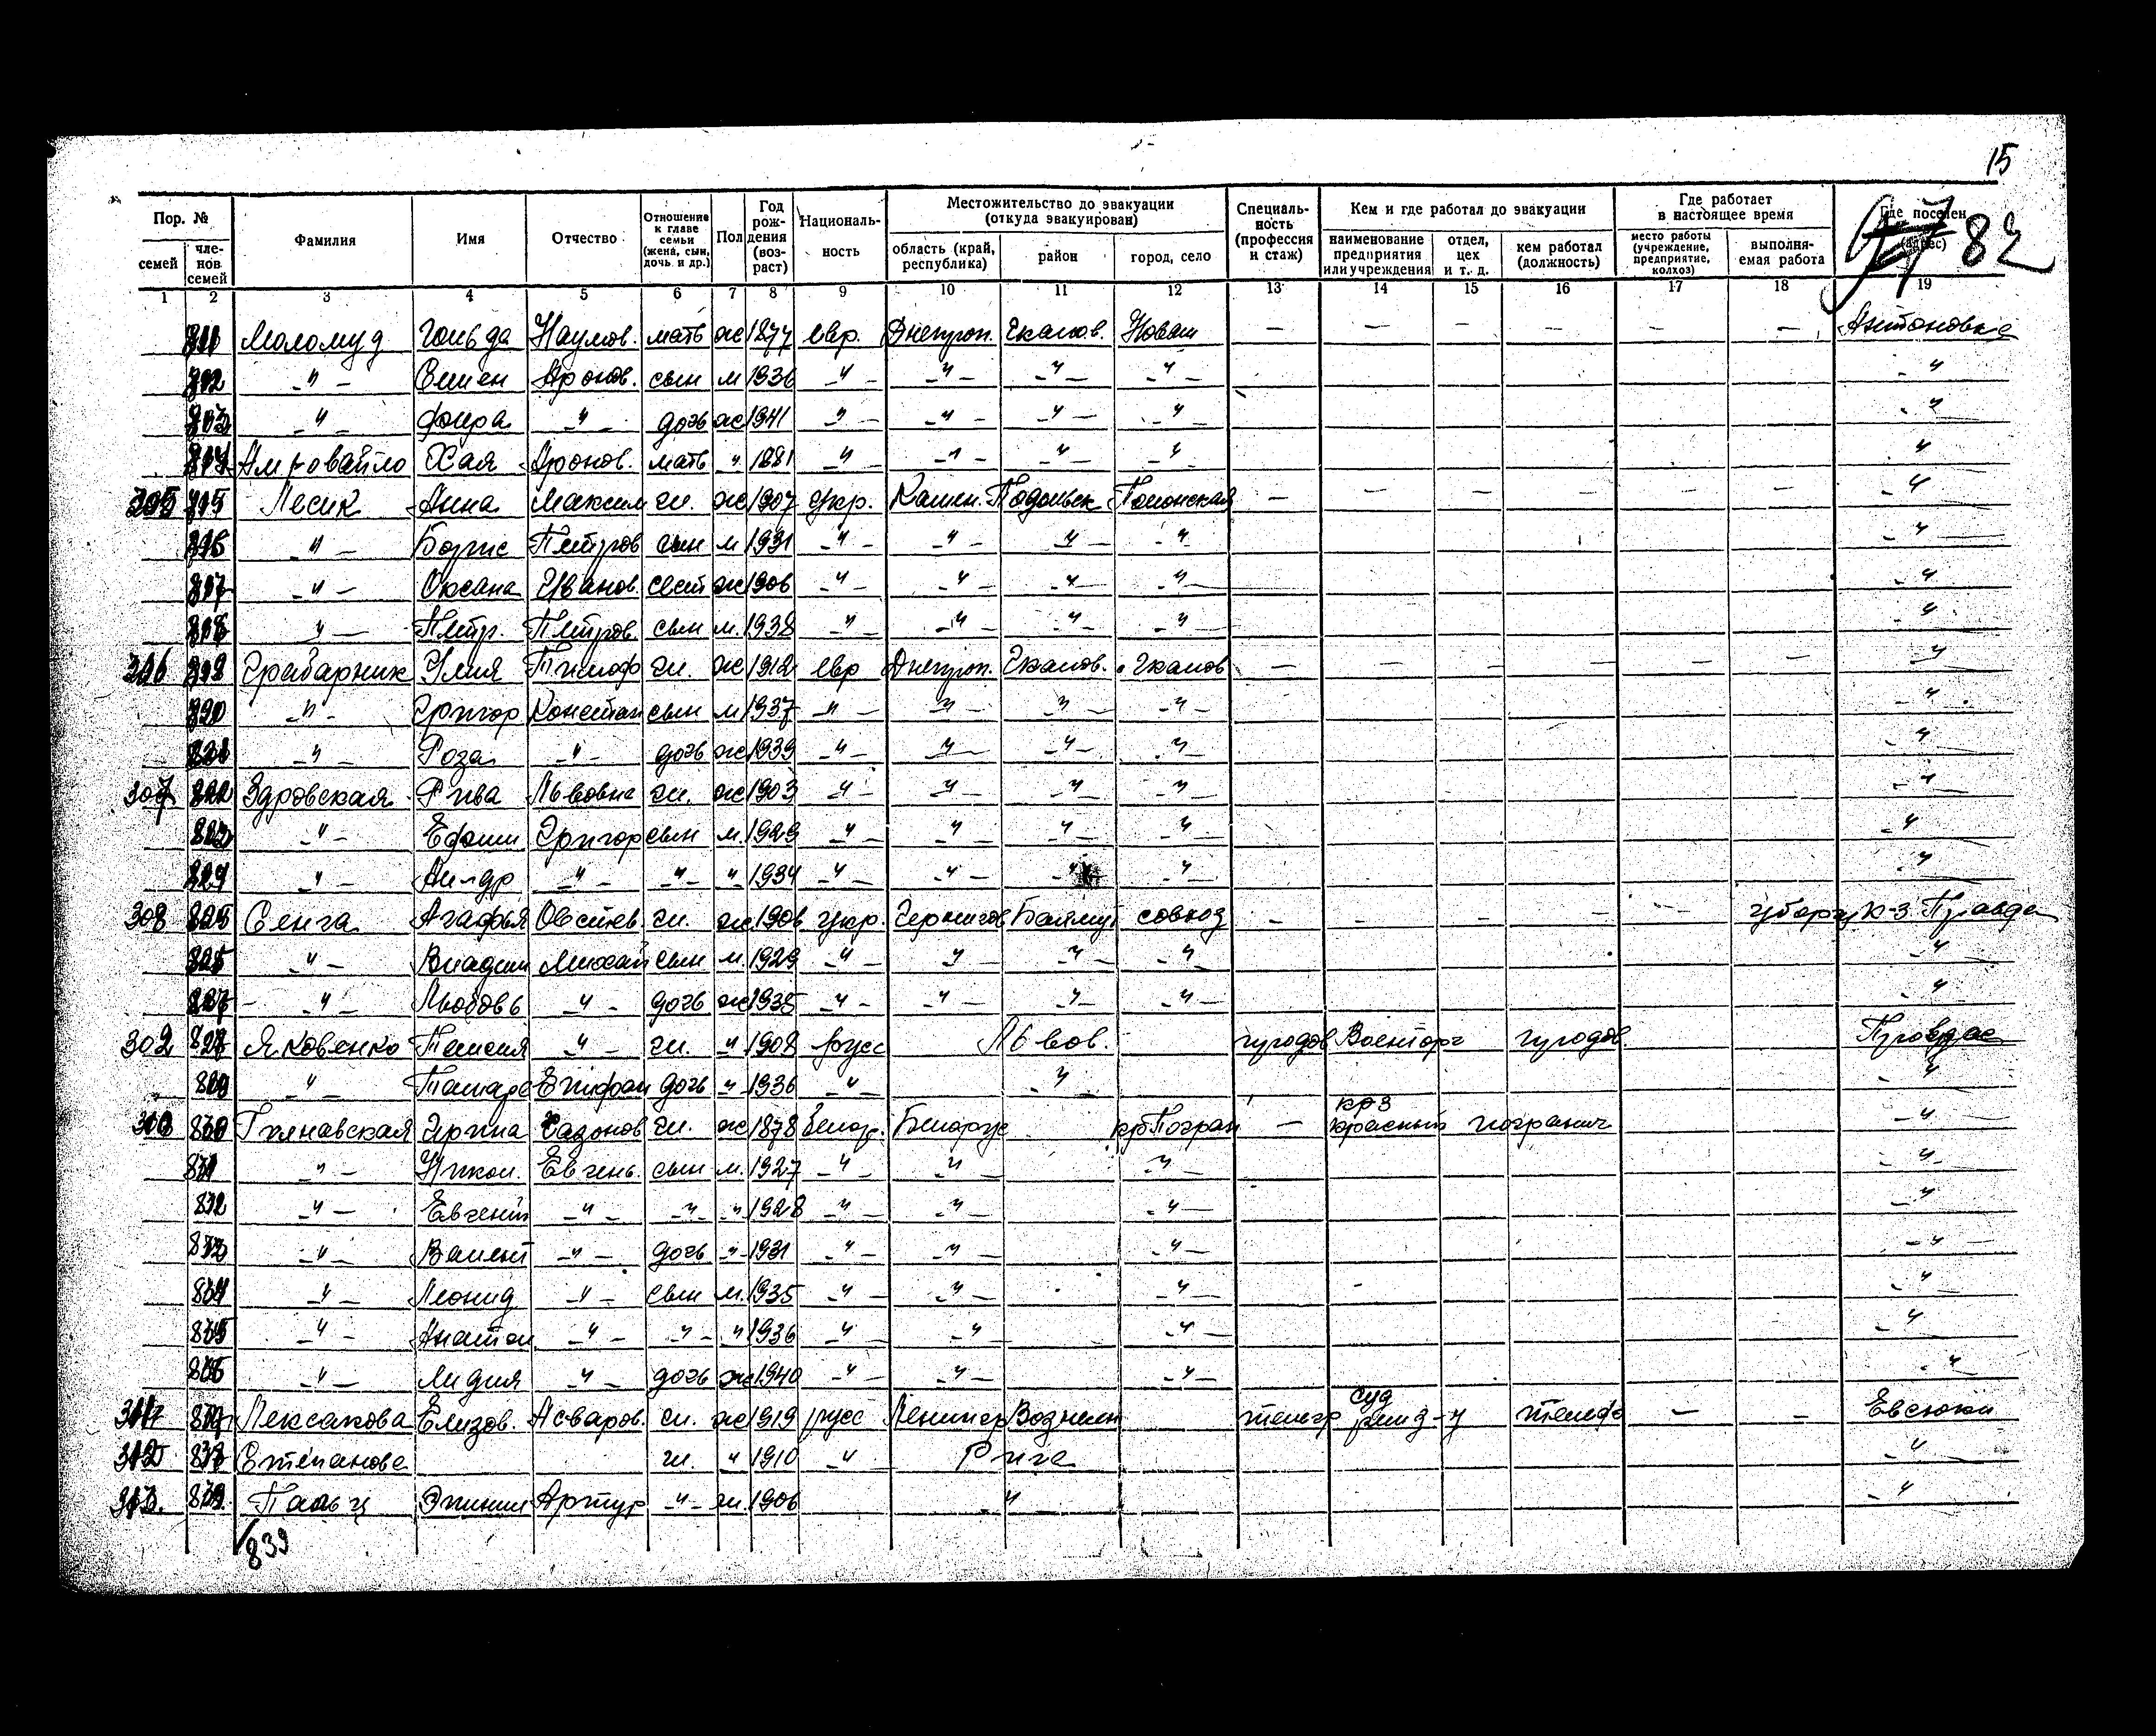 15
82
Пор. №
семей
членов семей
Фамилия
Имя
Отчество
Отношение к главе семьи (жена, сын, дочь и др.)
Пол
Год рождения (возраст)
Национальность
Местожительство до эвакуации (откуда эвакуирован)
область (край, республика)
район
город, село
Специальность (профессия и стаж)
Кем и где работал до эвакуации
наименование предприятия или учреждения
отдел, цех и т. д.
кем работал (должность)
Где работает в настоящее время
место работы (учреждение, предприятие, колхоз)
выполняемая работа
Где поселен (адрес)
1 2 3 4 5 6 7 8 9 10 11 12 13 14 15 16 17 18 19
811 Маломуд Гольда Наумов. мать ж 1877 евр. Днепроп. Чкалов. — — — — — — Антоновка
812 -"- Аронов. сын м 1936 -"- -"- -"- -"- -"
813 -"- Фаира -"- дочь ж 1941 -"- -"- -"- -"- -"
814 Хая Аронов. мать " 1881 -"- -"- -"- -"- -"
305 815 Лесик Анна Максим гл. ж 1907 укр. Камен. Подольск Полонская — — — — — — -"
816 -"- Борис Петров сын м 1931 -"- -"- -"- -"- -"
817 -"- Оксана Иванов. ж 1906 -"- -"- -"- -"- -"
818 -"- Петр. Петров. сын м. 1938 -"- -"- -"- -"- -"
306 819 Грабарник Тимоф гл. ж 1912 евр Днепроп. Чкалов. Чкалов — — — — — — -"
820 -"- Григор Констан сын м 1937 -"- -"- -"- -"- -"
821 -"- Роза -"- дочь ж 1939 -"- -"- -"- -"- -"
307 822 Здровская Рива Львовна гл. ж 1903 -"- -"- -"- -"- -"
823 -"- Ефим Григор сын м. 1929 -"- -"- -"- -"- -"
824 -"- -"- -"- " 1934 -"- -"- -"- -"- -"
308 825 Сенга Агафья Овсиев. гл. ж 1906 укр. Чернигов совхоз — — — — — к-з Правда
826 -"- Владим Михай сын м. 1929 -"- -"- -"- -"- -"
827 -"- Любовь -"- дочь ж 1935 -"- -"- -"- -"- -"
309 828 Яковенко -"- гл. " 1908 русс Львов. продов Военторг продов. Правда
829 -"- Тамара Епифан дочь " 1936 -"- -"- -"
310 830 Гиляновская Ирина гл. ж 1878 белор. Белорус кр Погран — крз красный погранич -"
831 -"- Никол. Евгень. сын м. 1927 -"- -"- -"- -"
832 -"- Евгений -"- -"- " 1928 -"- -"- -"- -"
833 -"- Валент -"- дочь " 1931 -"- -"- -"- -"
834 -"- Леонид -"- сын м. 1935 -"- -"- -"- -"
835 -"- Анатол. -"- -"- " 1936 -"- -"- -"- -"
836 -"- Лидия -"- дочь ж 1940 -"- -"- -"- -"
311 837 Лексакова Елизов. Асваров. гл. ж 1919 русс Ленингр суд — — Евсюки
312 838 Степанова гл. " 1910 " Рига -"
313. 839 Артур -"- 1906 -"- -"
839